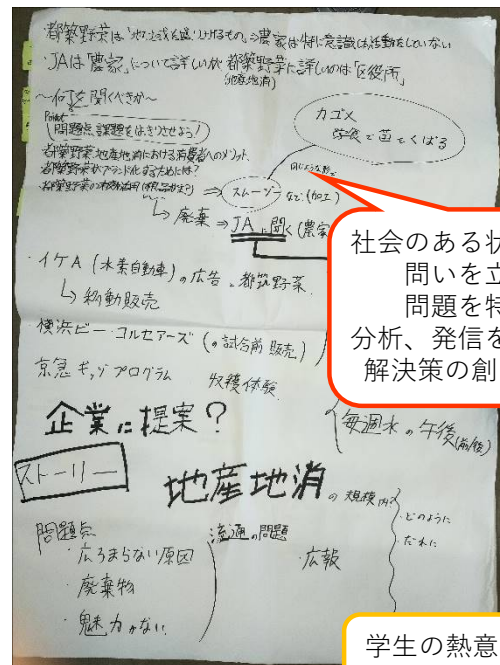 都築野菜は 農家は特に意識した活動をしていない
・JAは「農家」について詳しいが 都築野菜に詳しいのは「区役所」
(地産地消)
〜何を聞くべきか〜
Point
問題点、課題をはっきりさせよう!
カゴメ
学校で苗てくばる
都築野菜、地産地消における消費者へのメリット、
都築野菜がブランド化するためには?
都築野菜の
⇒ スムージー など(加工)
↳ 廃棄 ⇒ JAに聞く(農家
・イケA(水素自動車)の広告、都筑野菜
↳ 移動販売
・横浜ビー・コルセアーズ(の試合前 販売)
京急 キッズプログラム 収穫体験
企業に提案?
毎週水の午後
ストーリー
地産地消の規模内
・どのように
・だれに
問題点
・広まらない原因
・廃棄物
・魅力がない
流通の問題
・広報
社会のある状
問いを立
問題を特
分析、発信を
解決策の創
学生の熱意